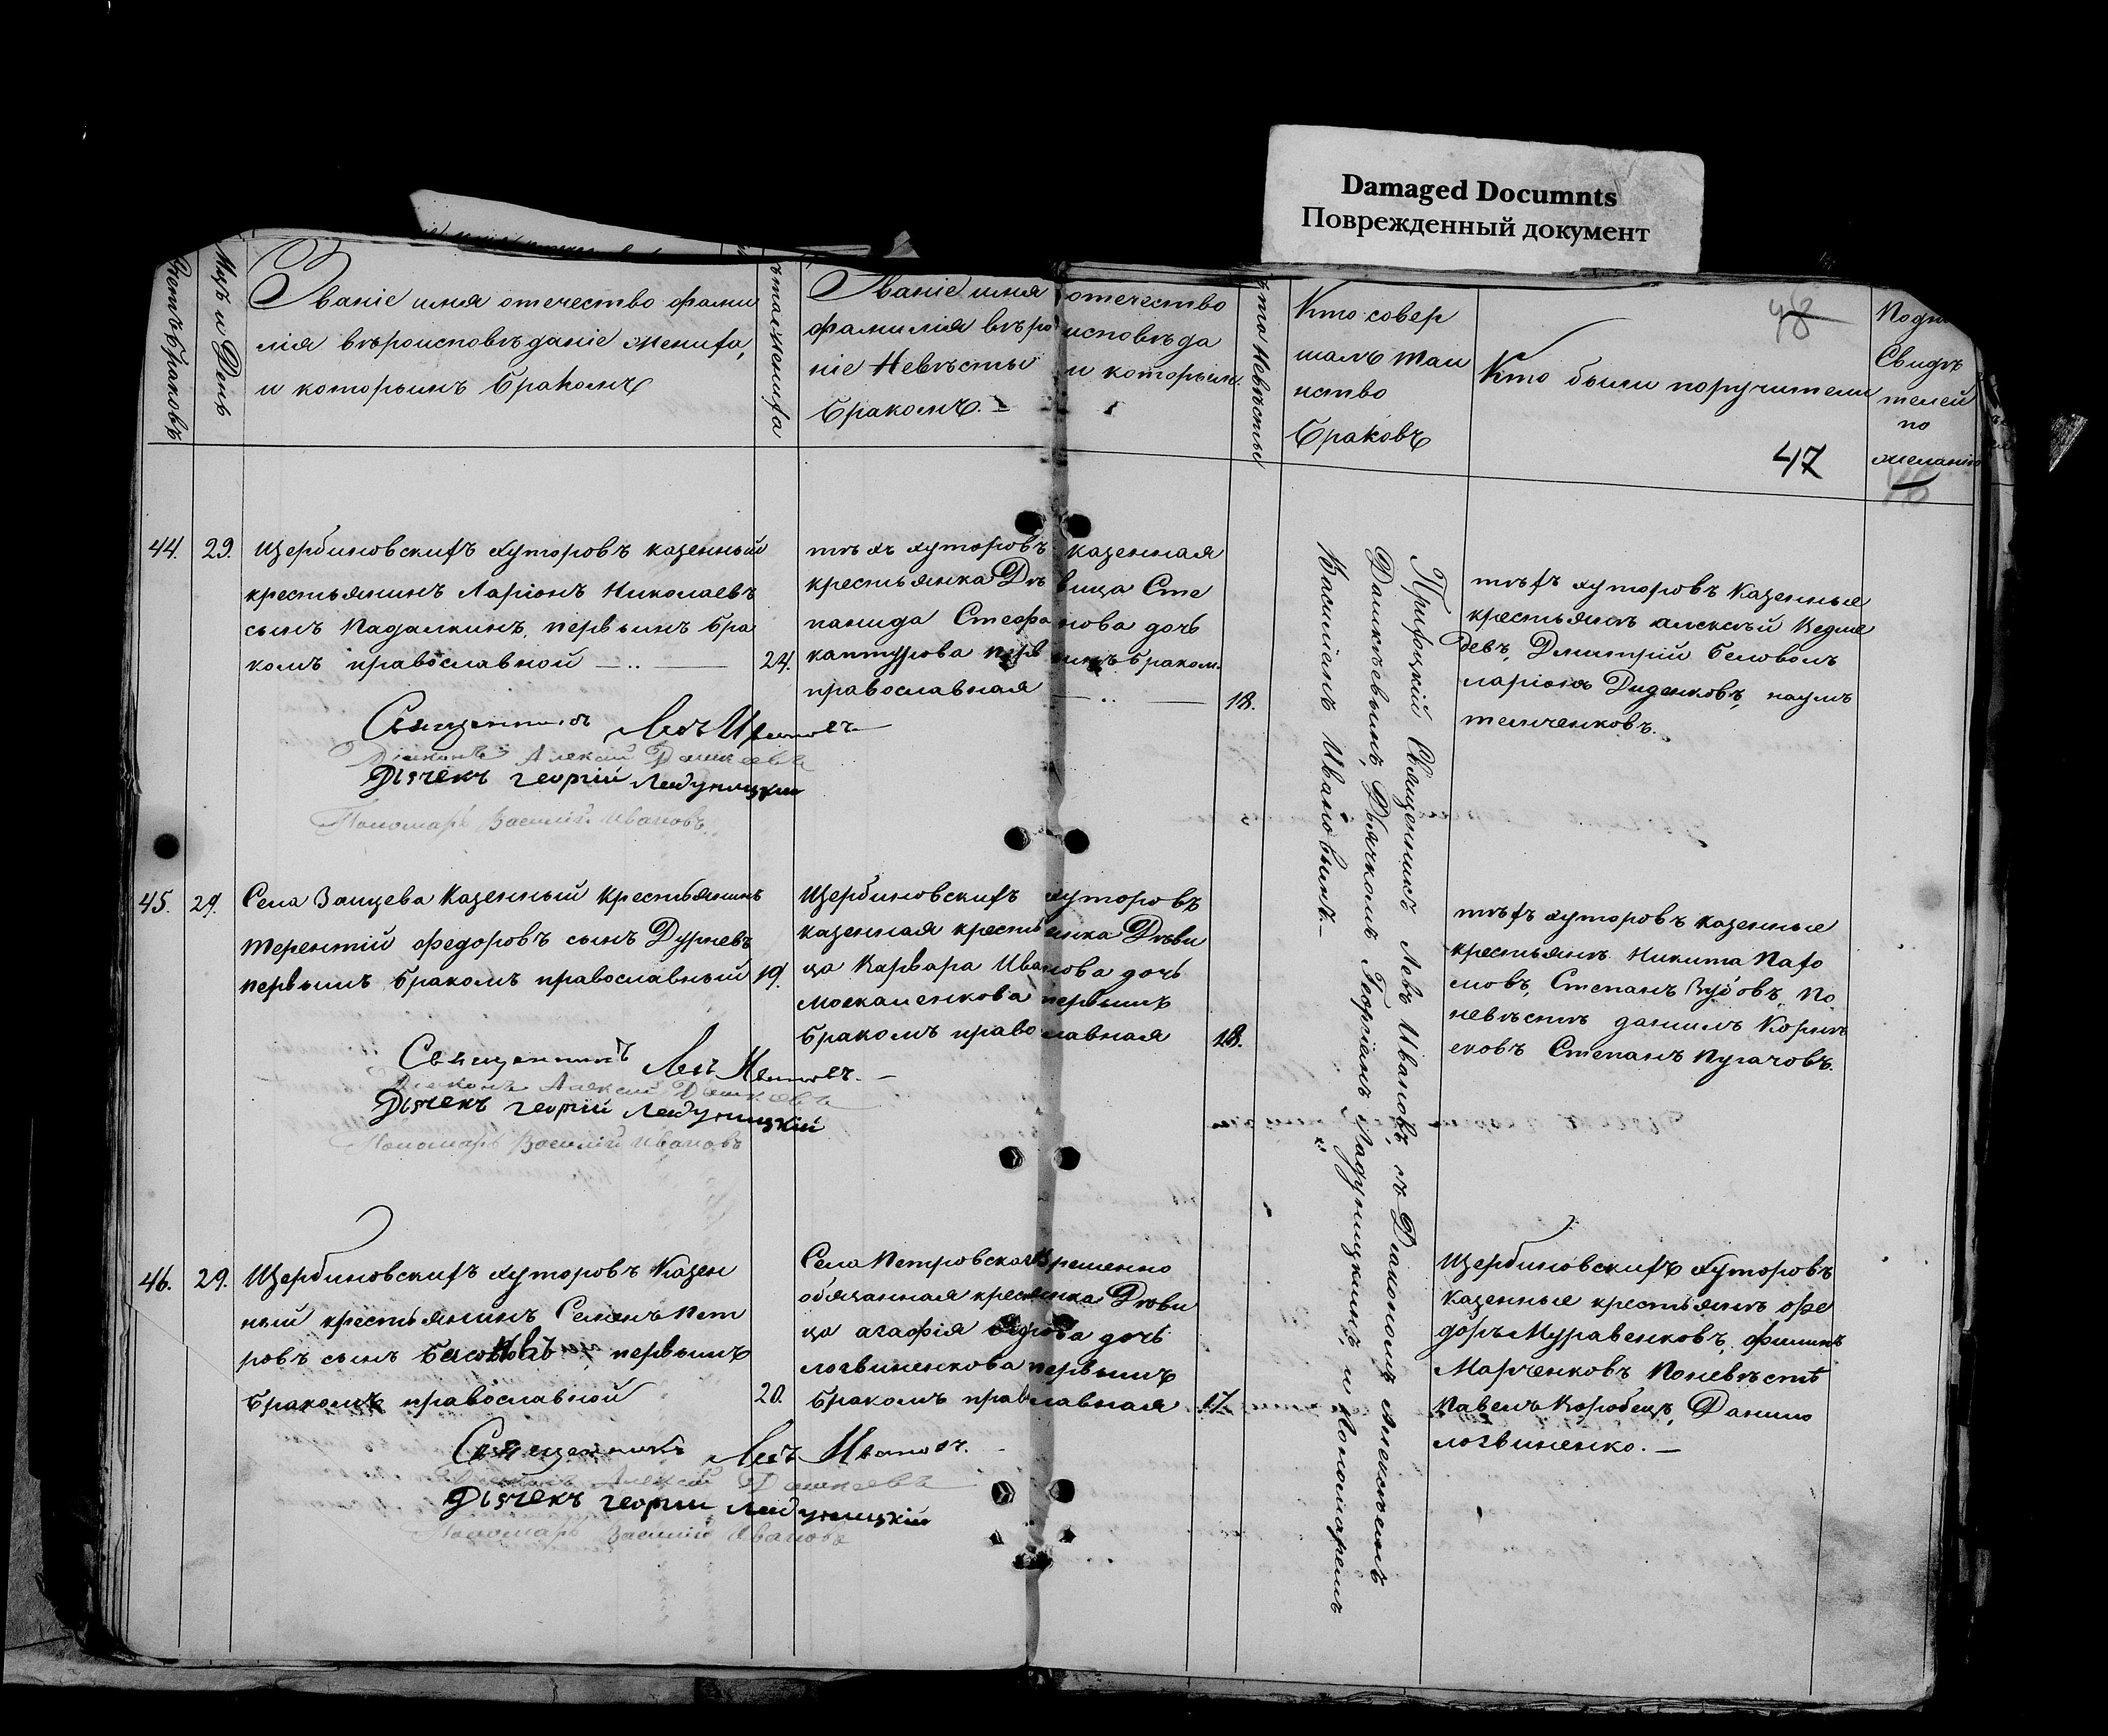 Damaged Documnts
Поврежденный документ
Счетъ браковъ
Мцъ и День
Званіе имя отечество фами
лія вѣроисповѣданіе жениха,
и которымъ бракомъ
ѣта жениха
Званіе имя отечество
фамилія вѣро исповѣда
ніе Невѣсты и которым.
бракомъ.
ѣта Невѣсты
Кто совер
шалъ таи
нство
браковъ
Кто были поручители
47
Свидѣ
телей
по
желанію
44.
29.
Щербиновскихъ хуторовъ казенный
крестьянинъ Ларіонъ Николаевъ
сынъ Падалкинъ, первымъ бра
комъ православной
24.
тѣхъ хуторовъ казенная
крестьянка Дѣвица Сте
панида Стефанова дочь
каптурова первымъ браком.
православная
18.
тѣхъ хуторовъ казенные
крестьянѣ алексѣй Ведме
девъ, Дмитрій Беловолъ
ларіонъ Диденковъ, наумъ
Священникъ Левъ Ивановъ
Діаконъ Алексій Дашкеевъ
Дячекъ георгій
Пономарь Василій Ивановъ
Прифоцкій Священникъ Левъ Ивановъ, съ Діакономъ Алексѣемъ
Дашкѣевымъ, Дьячкомъ Георгіемъ и Пономаремъ
Василіемъ Ивановымъ.
45.
29.
Села Зайцева Казенный Крестьянинъ
Терентій федоровъ сынъ Дурневъ
первымъ бракомъ православный
19.
Щербиновскихъ хуторовъ
казенная крестьянка Дѣви
ца Варвара Иванова дочь
москаленкова первымъ
бракомъ православная
18.
тѣхъ хуторовъ казенные
крестьянѣ Никита Пахо
мовъ, Степанъ Зубовъ, По
невѣстѣ данилъ Корнѣ
ековъ Степанъ Пугачовъ.
Священникъ Левъ Ивановъ.
Діаконъ Алексій Дашкеевъ
Дячекъ георгій
Пономарь Василій Ивановъ
46.
29.
Щербиновскихъ хуторовъ Казен
ный крестьянинъ Семенъ Пет
ровъ сынъ первымъ
бракомъ православной
20.
Села Петровска временно
обязанная крестьянка Дѣви
ца агафія дочь
логвиненкова первымъ
бракомъ православная
17.
Щербиновскихъ хуторовъ
казенные крестьянѣ фе
доръ Муравенковъ, филипъ
Марченковъ Поневѣстѣ
Павелъ Коробецъ, Данило
логвиненко.
Священникъ Левъ Ивановъ.
Діаконъ Алексій Дашкеевъ
Дячекъ георгіи
Пономарь Василій Ивановъ